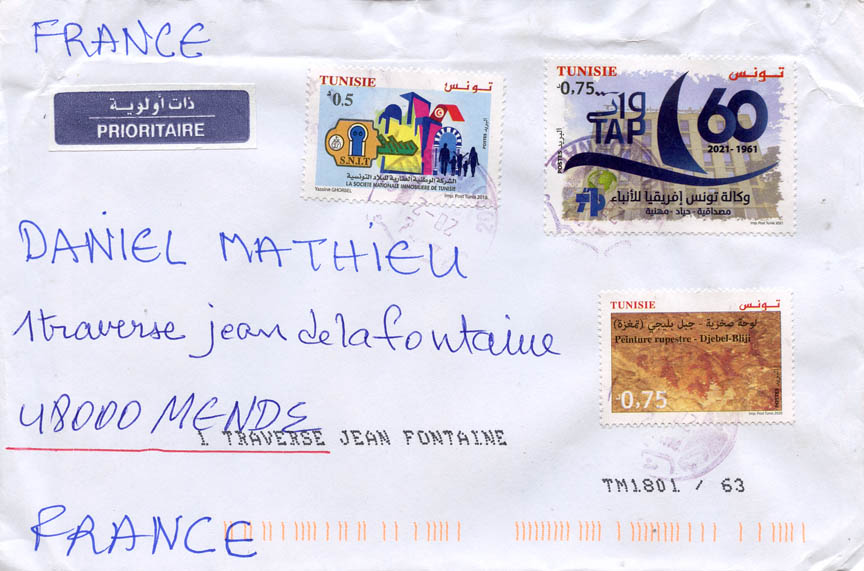 FRANCE
ذات أولوية
PRIORITAIRE
TUNISIE تونس
0.5
S.N.I.T
الشركة الوطنية العقارية للبلاد التونسية
LA SOCIETE NATIONALE IMMOBILIERE DE TUNISIE
Yassine GHORBEL
TUNISIE تونس
0.75
وات
TAP
60
2021-1961
POSTES البريد
وكالة تونس إفريقيا للأنباء
مصداقية - حياد - مهنية
DANIEL MATHIEU
1 traverse jean de la fontaine
48000 MENDE
1 TRAVERSE JEAN FONTAINE
TUNISIE تونس
لوحة صخرية - جبل بليجي (تمغزة)
Peinture rupestre - Djebel-Bliji
0,75
TM1801 / 63
FRANCE